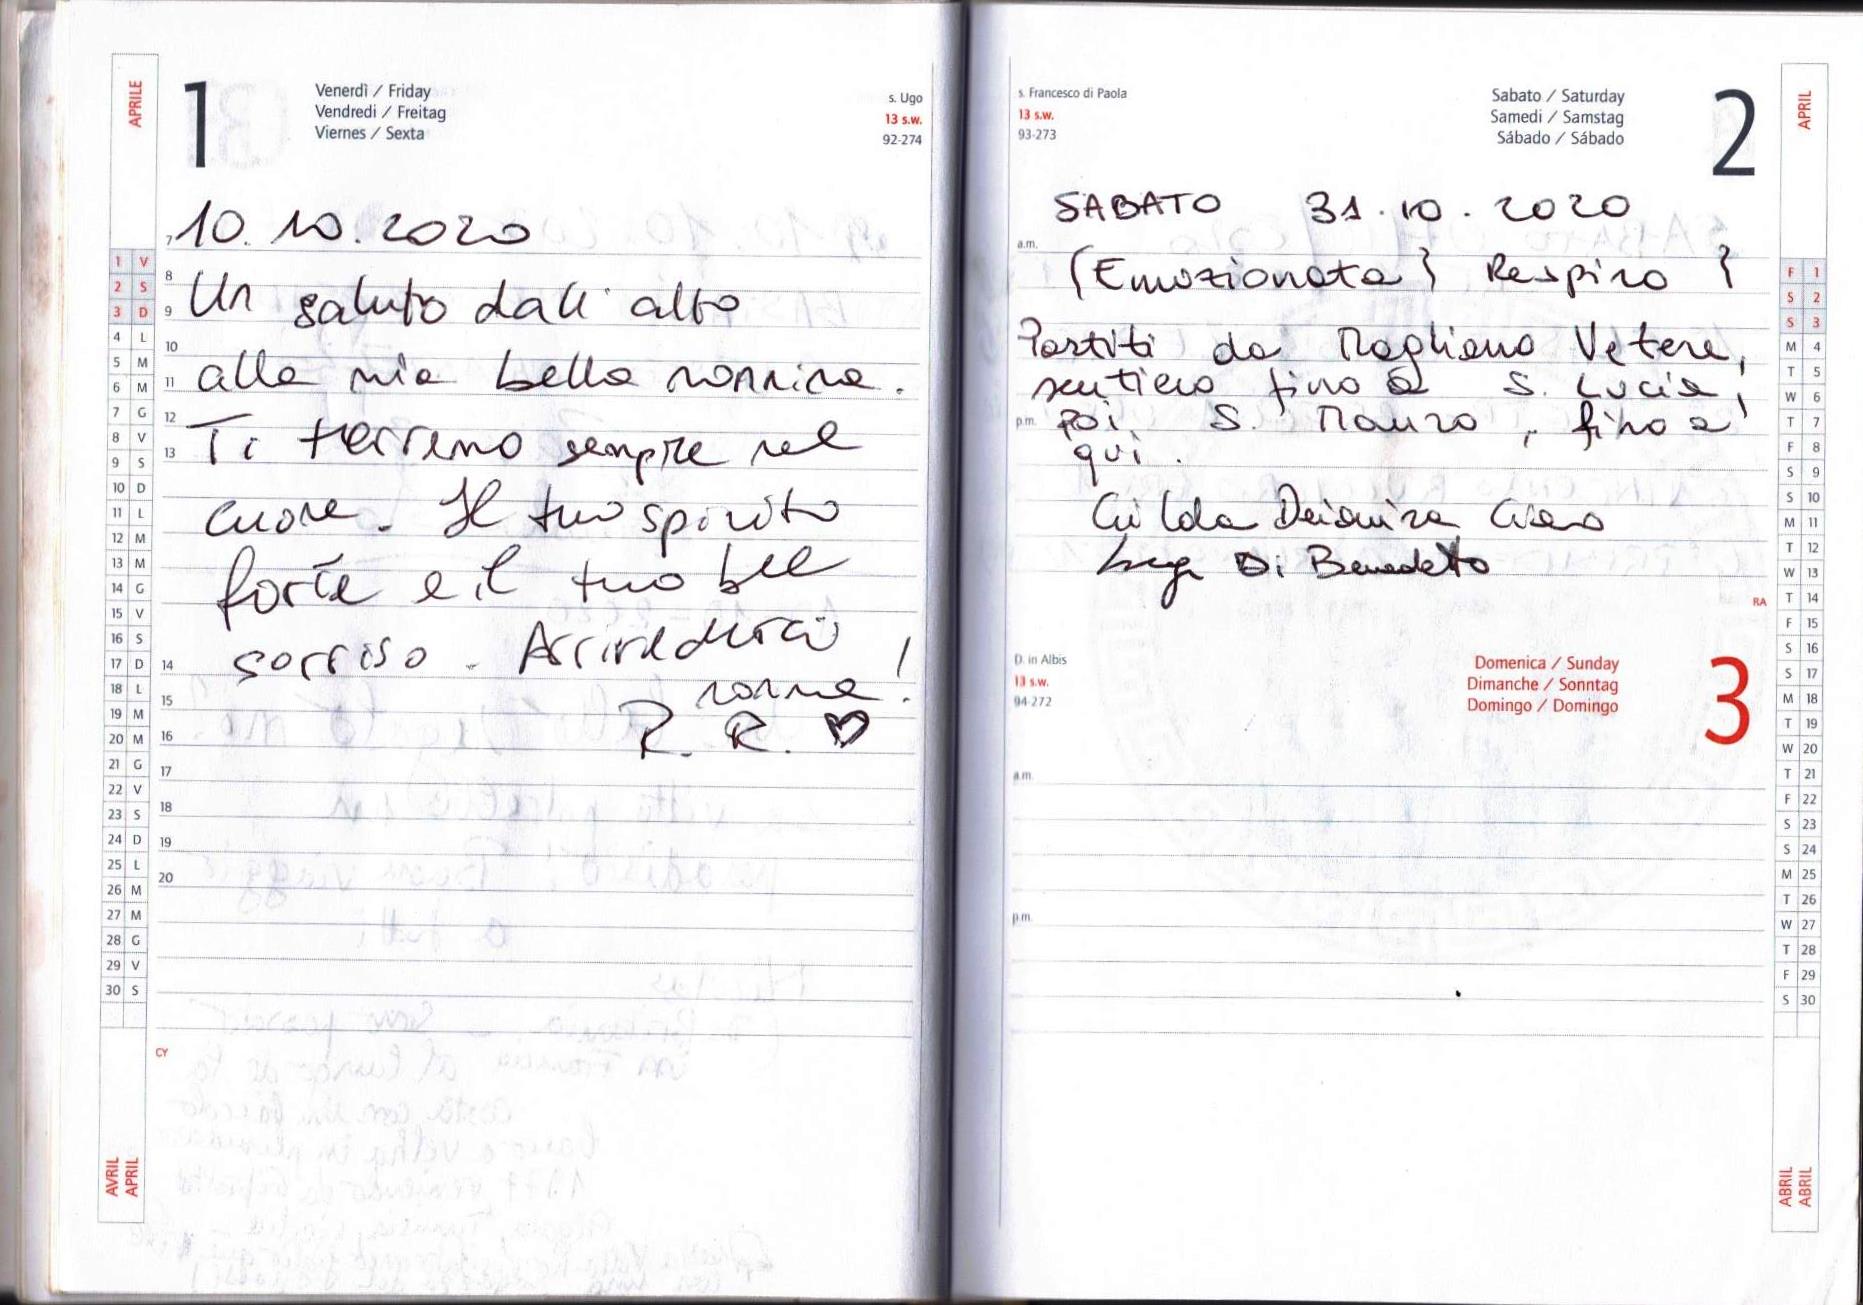 APRILE
1
Venerdì / Friday
Vendredi / Freitag
Viernes / Sexta
s. Ugo
13 s.w.
92-274
10.10.2020
Un saluto dall'alto
alla mia bella nonnina.
Ti terremo sempre nel
cuore. Il tuo spirito
forte e il tuo bel
sorriso. Arrivederci
nonna!
R. R. ♡
7
8
9
10
11
12
13
14
15
16
17
18
19
20
CY
1 V
2 S
3 D
4 L
5 M
6 M
7 G
8 V
9 S
10 D
11 L
12 M
13 M
14 G
15 V
16 S
17 D
18 L
19 M
20 M
21 G
22 V
23 S
24 D
25 L
26 M
27 M
28 G
29 V
30 S
AVRIL
APRIL
s. Francesco di Paola
13 s.w.
93-273
Sabato / Saturday
Samedi / Samstag
Sábado / Sábado
2
APRIL
SABATO 31.10.2020
a.m.
(Emozionata} Respiro }
Partiti da Magliano Vetere,
sentiero fino a S. Lucia,
p.m.
poi S. Mauro, fino a
qui.
Gilda
Di Benedetto
RA
D. in Albis
13 s.w.
94-272
Domenica / Sunday
Dimanche / Sonntag
Domingo / Domingo
3
a.m.
p.m.
F 1
S 2
S 3
M 4
T 5
W 6
T 7
F 8
S 9
S 10
M 11
T 12
W 13
T 14
F 15
S 16
S 17
M 18
T 19
W 20
T 21
F 22
S 23
S 24
M 25
T 26
W 27
T 28
F 29
S 30
ABRIL
ABRIL